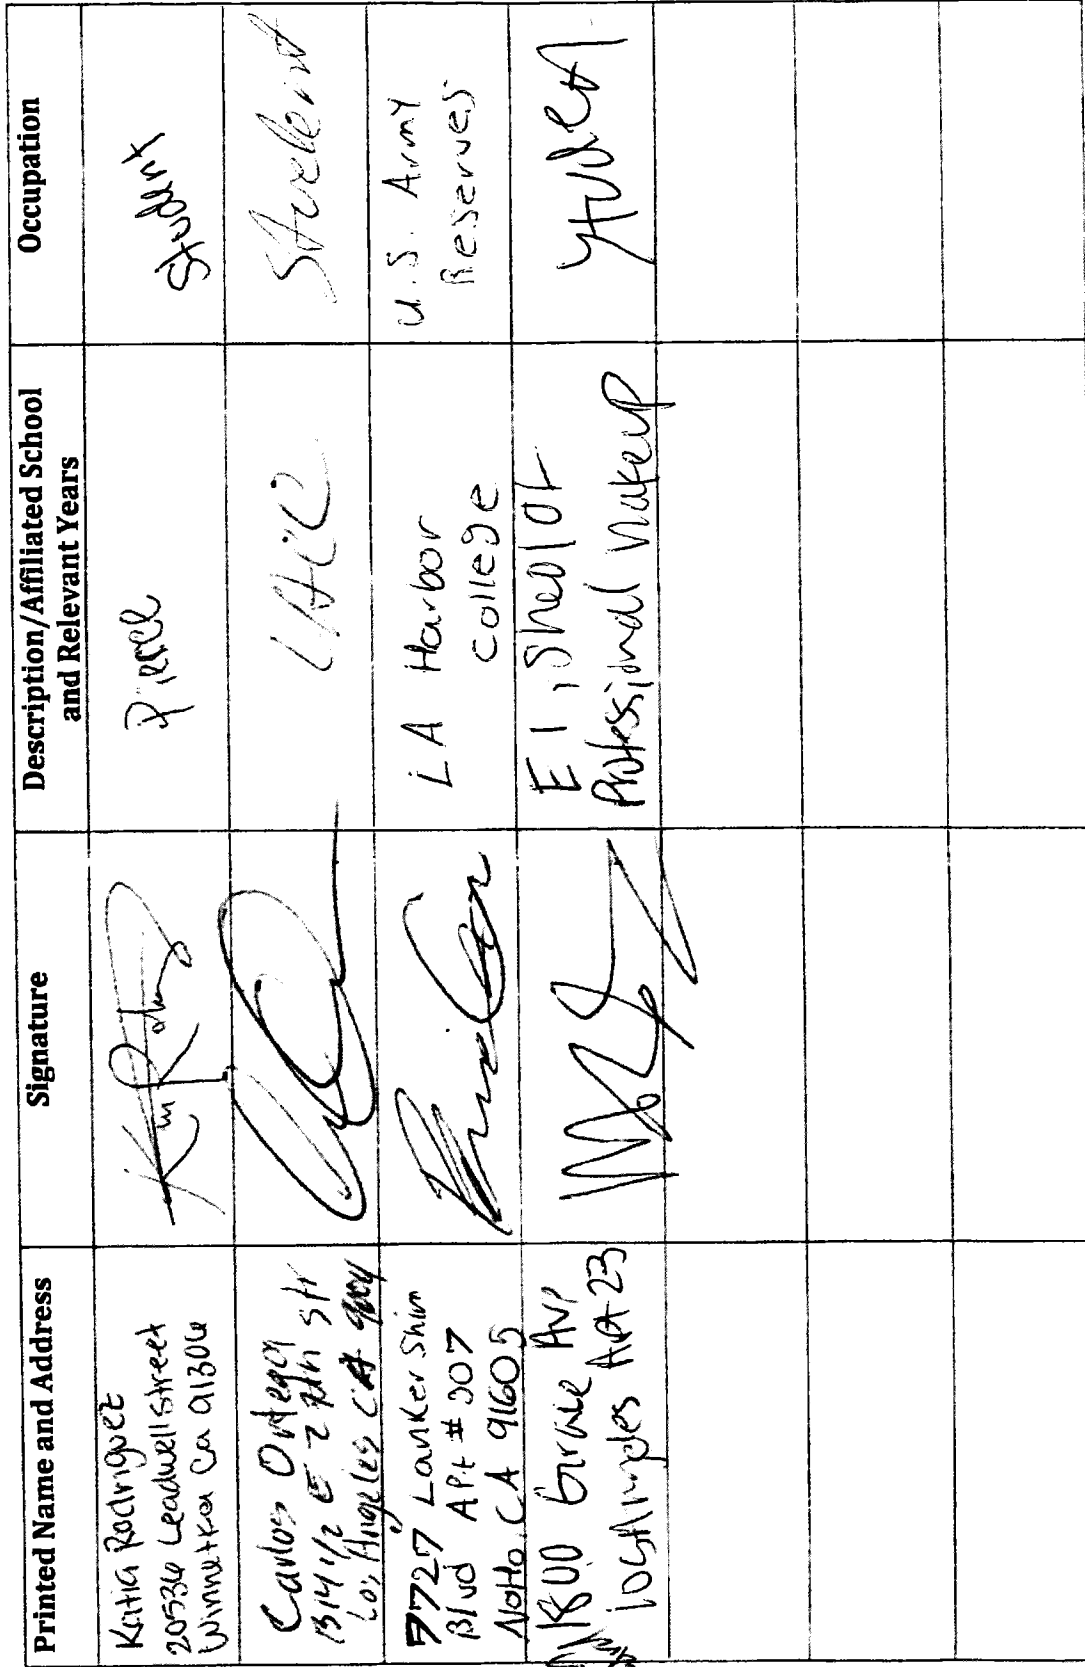 Printed Name and Address
Signature
Description/Affiliated School
and Relevant Years
Occupation
Katia Rodriguez
20536 Leadwell street
Winnetka Ca 91306
Pierce
Student
Carlos Ortega
1314 1/2 E 7th str
Los Angeles CA
Student
7727 LanKer Shim
Blvd APt # 207
NoHo, CA 91605
LA Harbor
college
U.S. Army
Reserves
1800 Grace Ave
los Angeles Apt 23
Professional Makeup
student